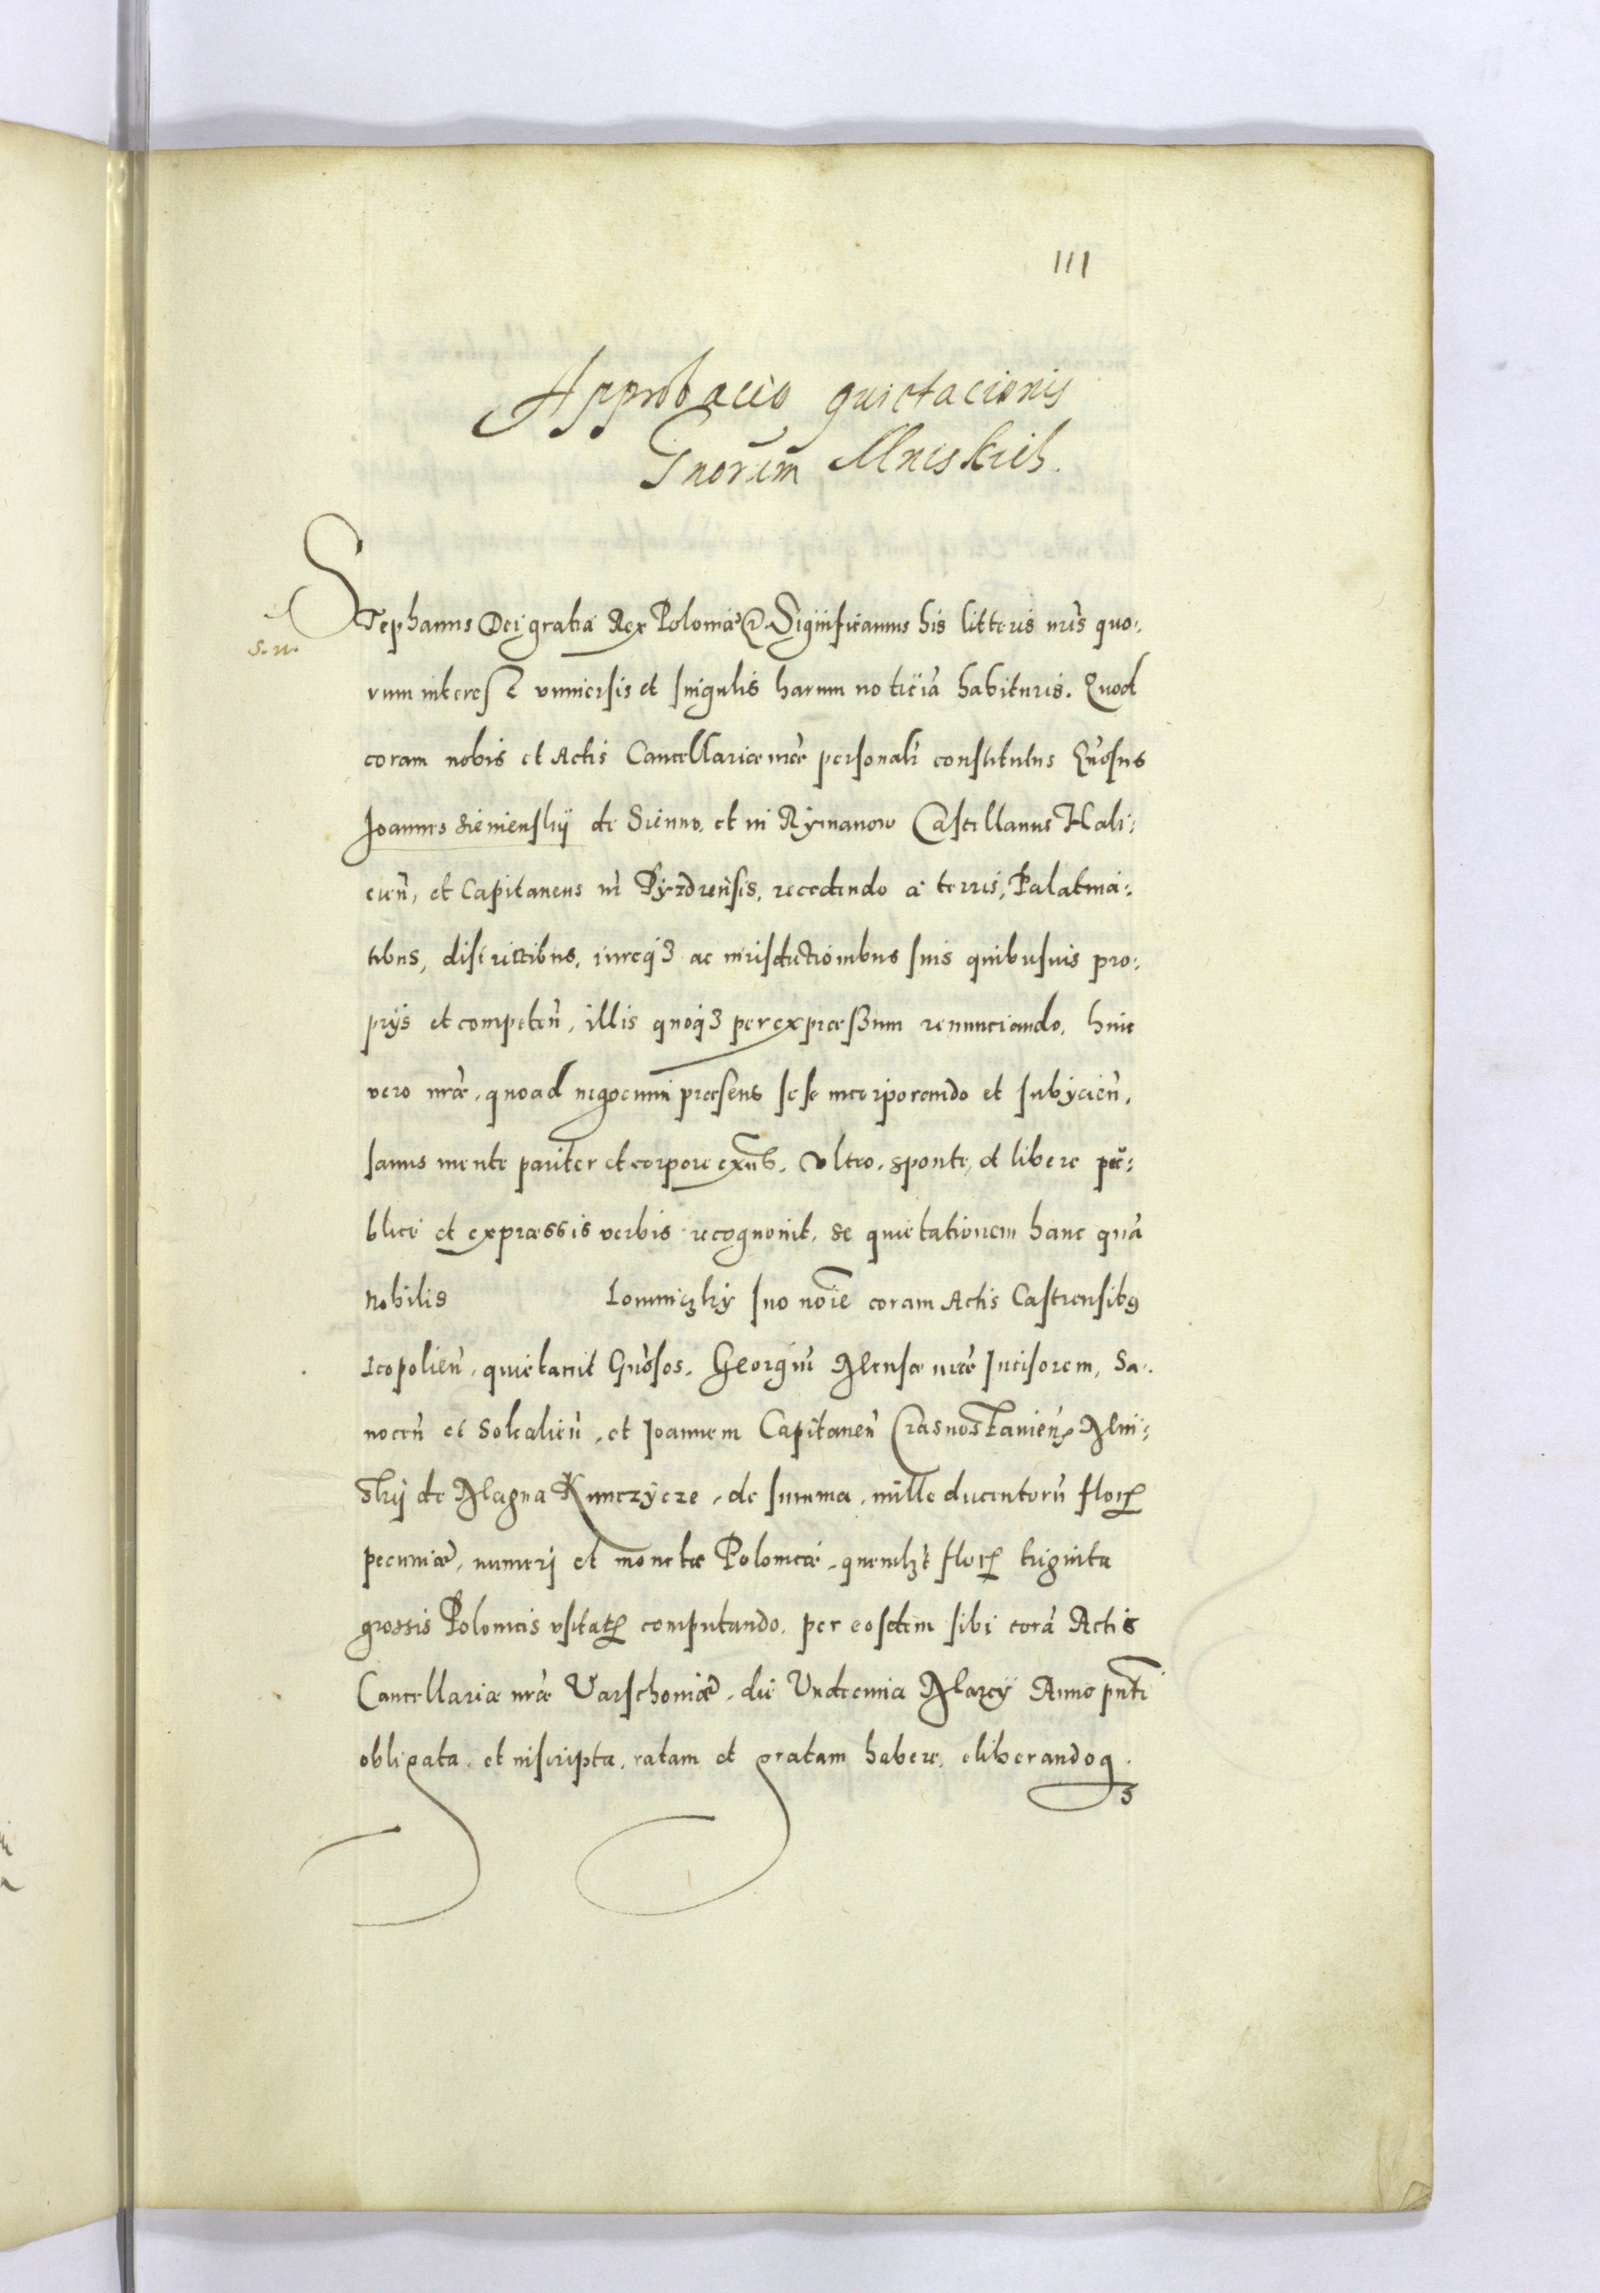 111
Approbacio quictacionis
Gnorum Mniskich.
Stephanus Dei gratia Rex Poloniæ &c Significamus his litteris nr̃is quo:
rum interest vniuersis et singulis harum noticiã habituris. Quod
coram nobis et Actis Cancellariæ nr̃æ personalr̃ constitutus Gñosus
Joannes Sienienskij de Sienno, et in Rymanow Castellanus Hali:
cien̄, et Capitaneus nr̃ Pyzdrensis, recedendo a terris, Palatina:
s. n.
tibus, districtibus, iureq3 ac iurisdictionibus suis quibusuis pro:
prijs et competen̄, illis quoq3 per expræssum renunciando, huic
vero nr̃æ, quoad negocium præsens sese incorporando et subijcien̄,
sanus mente pariter et corpore exn̄s, vltro, sponte, et libere pu:
blicé et expræssis verbis recognouit, se quietationem hanc quã
Nobilis Lomniczky suo noīe coram Actis Castrensib9
Leopolien̄, quietauit Gñosos, Georgiũ Mensæ nr̃æ Incisorem, Sa:
nocen̄ et Socalien̄, et Joannem Capitaneũ Crasnostauien̄, Mni:
skij de Magna Kunczycze, de summa, mille ducentorũ flor̃
pecuniæ, numeri et monetæ Polonicæ, quemlzt flor̃ triginta
grossis Polonicis vsitat̃ computando, per eosdem sibi corã Actis
Cancellariæ nr̃æ Varschouiæ, die Vndecima Marcij Anno pn̄ti
obligata, et inscripta, ratam et gratam habere, eliberandoq3